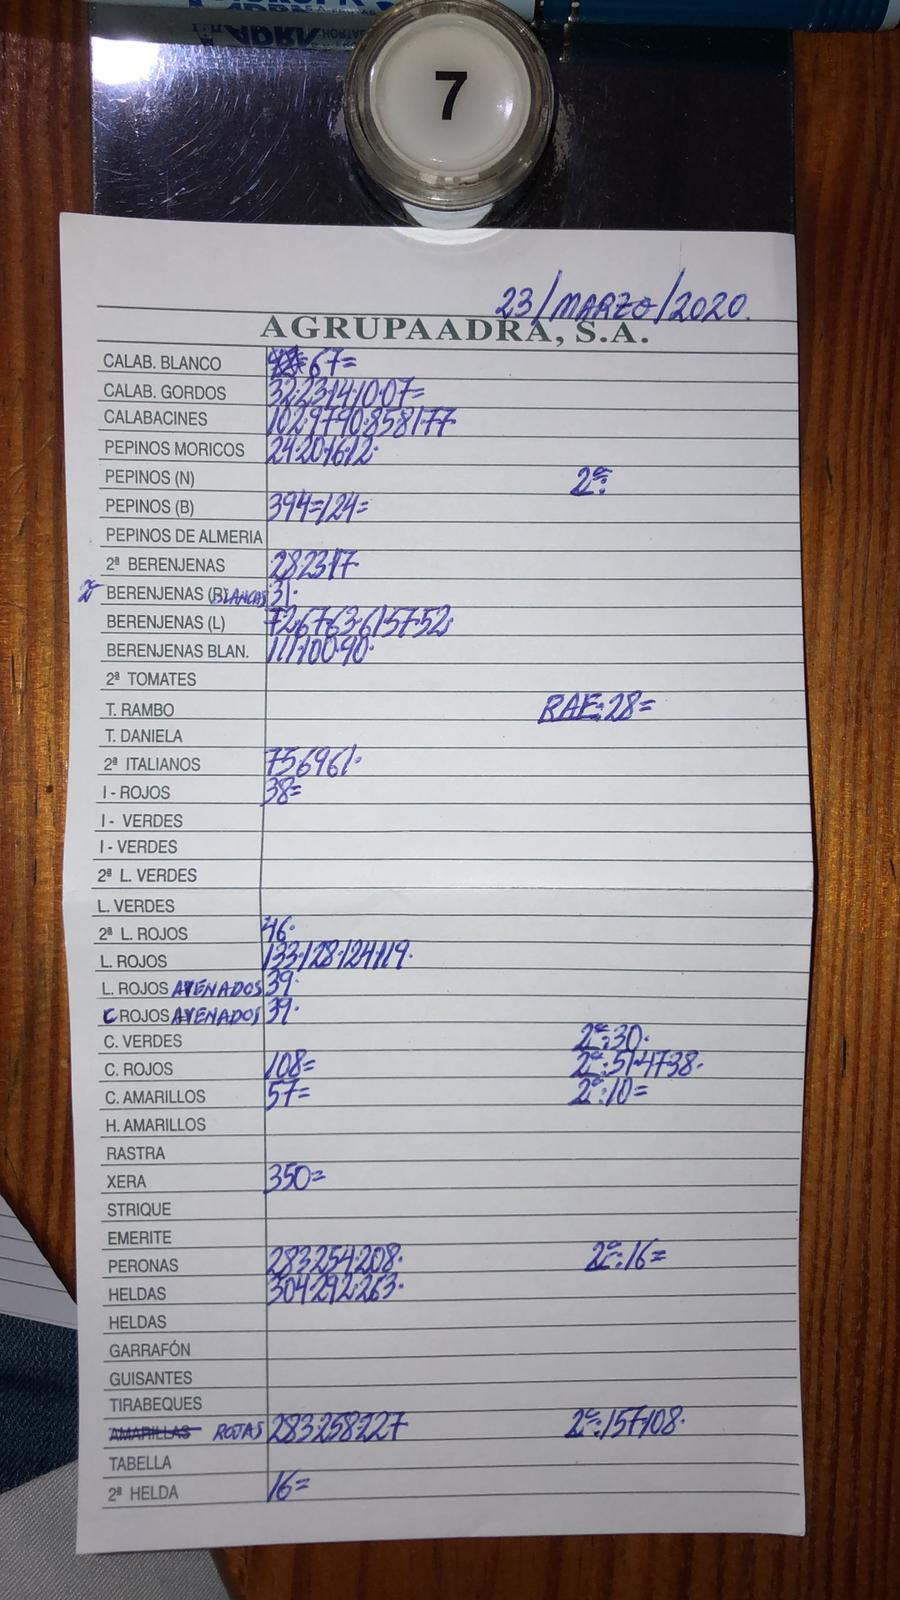 7
23/MARZO/2020.
AGRUPAADRA, S.A.
CALAB. BLANCO 67=
CALAB. GORDOS 32·23·14·10·07=
CALABACINES 102·97·90·85·81·77
PEPINOS MORICOS 24·20·16·12·
PEPINOS (N) 2ª:
PEPINOS (B) 394=124=
PEPINOS DE ALMERIA
2ª BERENJENAS 28·23·17·
2ª BERENJENAS (BLANCAS 31·
BERENJENAS (L) 72·67·63·61·57·52·
BERENJENAS BLAN. 111·100·90·
2ª TOMATES
T. RAMBO RAF:28=
T. DANIELA
2ª ITALIANOS 75·69·61·
I - ROJOS 38=
I - VERDES
I - VERDES
2ª L. VERDES
L. VERDES
2ª L. ROJOS 46·
L. ROJOS 133·128·124·119·
L. ROJOS AVENADOS 39·
C ROJOS AVENADOS 39·
C. VERDES 2ª:30·
C. ROJOS 108= 2ª:51·47·38·
C. AMARILLOS 57= 2ª:10=
H. AMARILLOS
RASTRA
XERA 350=
STRIQUE
EMERITE
PERONAS 283·254·208· 2ª:16=
HELDAS 304·292·263·
HELDAS
GARRAFÓN
GUISANTES
TIRABEQUES
AMARILLAS ROJAS 283·258·227 2ª:157·108·
TABELLA
2ª HELDA 16=